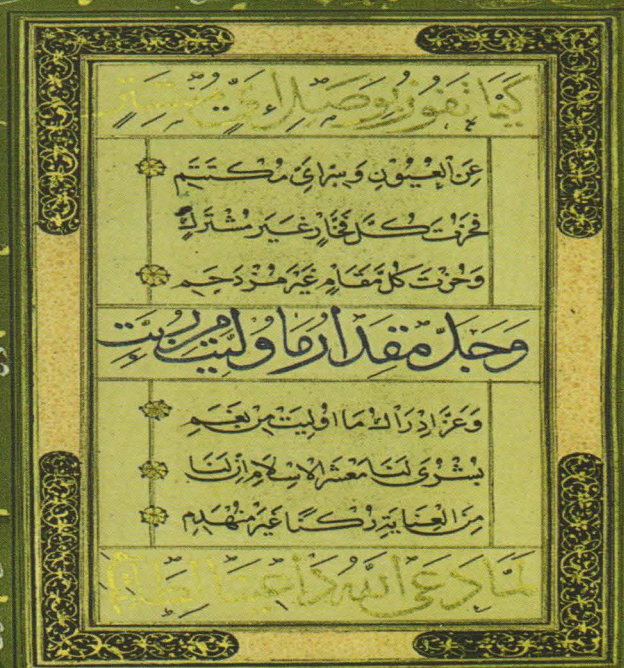 كَيْمَا تَفُوزَ بِوَصْلٍ اَيِّ مُسْتَتِرٍ
عَنِ الْعُيُونِ وَسِرٍّ اَيِّ مُكْتَتَمِ
فَحُزْتَ كُلَّ فَخَارٍ غَيْرَ مُشْتَرَكٍ
وَجُزْتَ كُلَّ مَقَامٍ غَيْرَ مُزْدَحَمِ
وَجَلَّ مِقْدَارُ مَا وُلِّيتَ مِنْ رُتَبٍ
وَعَزَّ اِدْرَاكُ مَا اُولِيتَ مِنْ نِعَمِ
بُشْرَى لَنَا مَعْشَرَ الْاِسْلَامِ اِنَّ لَنَا
مِنَ الْعِنَايَةِ رُكْنًا غَيْرَ مُنْهَدِمِ
لَمَّا دَعَى اللّٰهُ دَاعِينَا لِطَاعَتِهِ